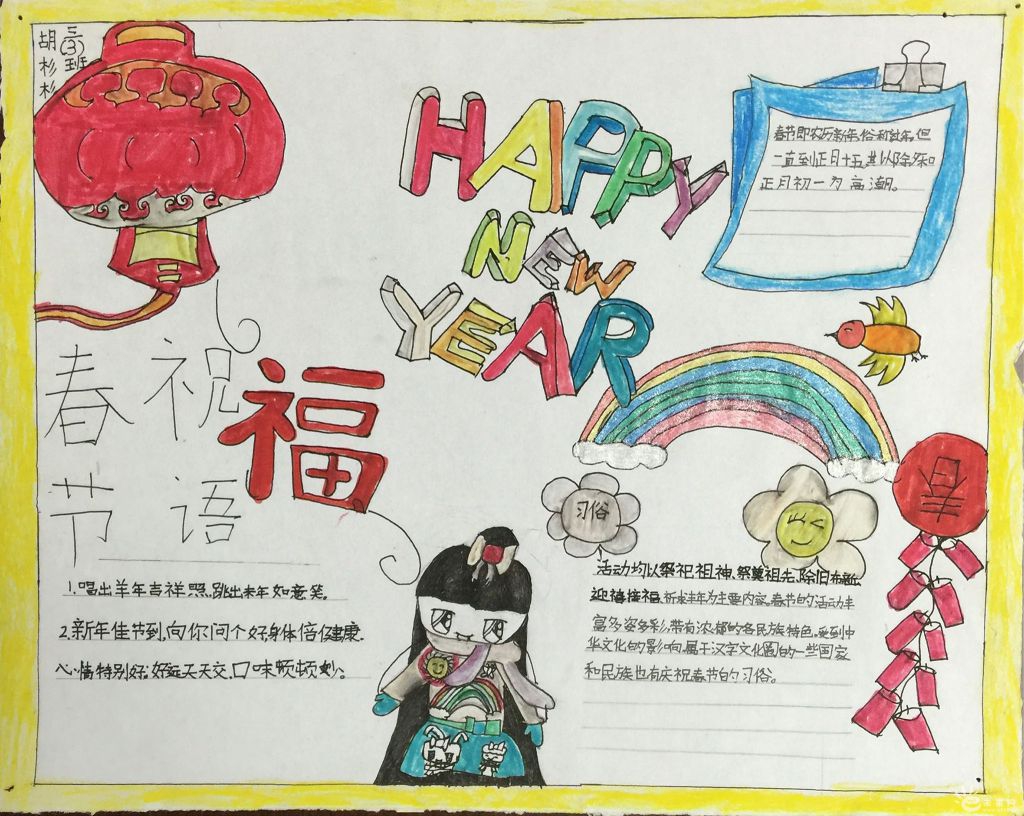 三(3)班
胡杉杉
HAPPY
NEW
YEAR
春节即农历新年,俗称过年,但
一直到正月十五,其以除夕和
正月初一为高潮。
春节
祝语
福
1.唱出羊年吉祥照,跳出未年如意笑。
2.新年佳节到,向你问个好,身体倍健康,
心情特别好,好运天天交,口味顿顿妙。
习俗
活动均以祭祀祖神、祭奠祖先、除旧布新、
迎禧接福、祈求丰年为主要内容。春节的活动丰
富多姿多彩,带有浓郁的各民族特色。受到中
华文化的影响,属于汉字文化圈的一些国家
和民族也有庆祝春节的习俗。